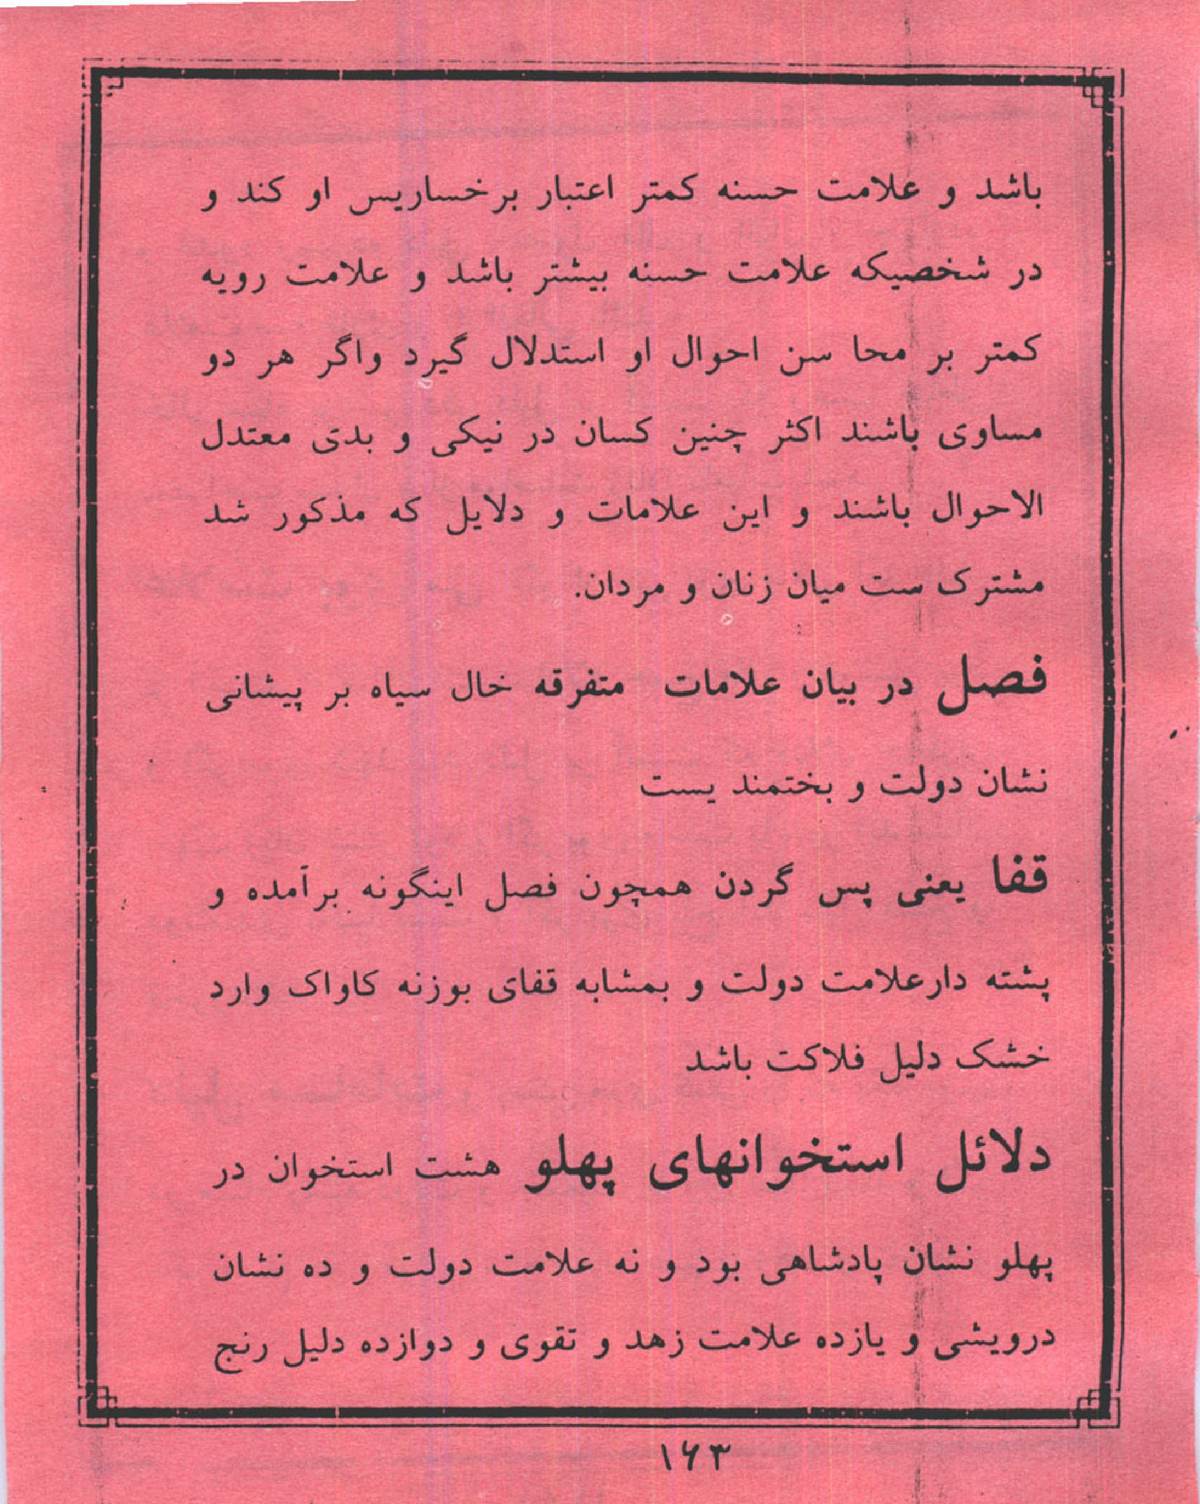 باشد و علامت حسنه کمتر اعتبار برخساریس او کند و
در شخصیکه علامت حسنه بیشتر باشد و علامت رویه
کمتر بر محا سن احوال او استدلال گیرد واگر هر دو
مساوی باشند اکثر چنین کسان در نیکی و بدی معتدل
الاحوال باشند و این علامات و دلایل که مذکور شد
مشترک ست میان زنان و مردان.
فصل در بیان علامات متفرقه خال سیاه بر پیشانی
نشان دولت و بختمند یست
قفا یعنی پس گردن همچون فصل اینگونه برآمده و
پشته دارعلامت دولت و بمشابه قفای بوزنه کاواک وارد
خشک دلیل فلاکت باشد
دلائل استخوانهای پهلو هشت استخوان در
پهلو نشان پادشاهی بود و نه علامت دولت و ده نشان
درویشی و یازده علامت زهد و تقوی و دوازده دلیل رنج
۱۶۳